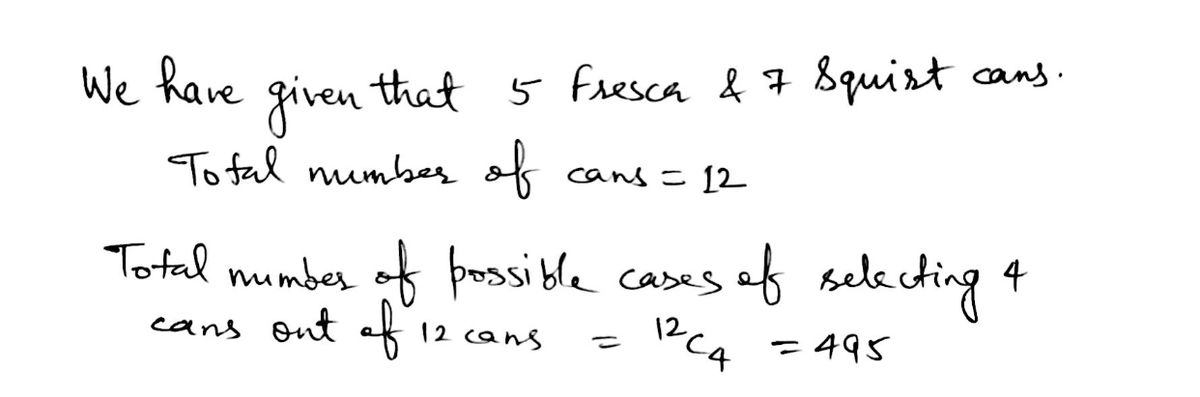 We have given that 5 Fresca & 7 Squirt cans.
Total number of cans = 12
Total number of possible cases of selecting 4
cans out of 12 cans = ¹²C₄ = 495